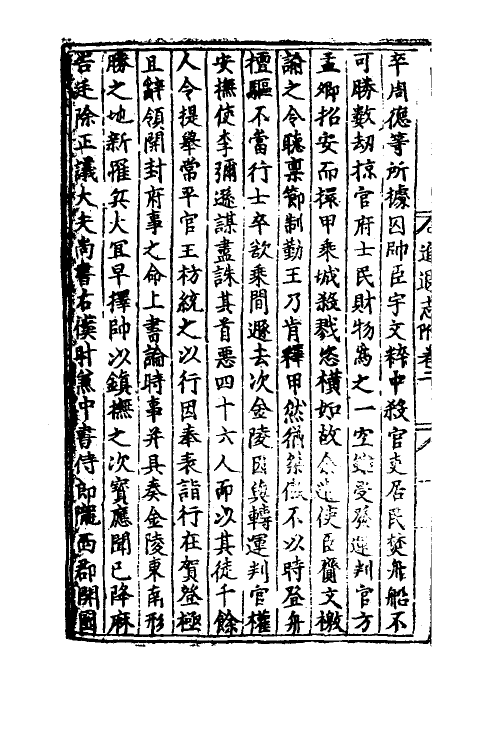 卒周德等所據囚帥臣宇文粹中殺官吏居民焚舟船不
可勝數劫掠官府士民財物為之一空雖受發運判官方
孟卿招安而擐甲乘城殺戮恣橫如故余遣使臣齎文檄
諭之令聽稟節制勤王乃肯釋甲然猶桀傲不以時登舟
擅驅不當行士卒欲乘間遁去次金陵因與轉運判官權
安撫使李彌遜謀盡誅其首惡四十六人而以其徒千餘
人令提舉常平官王枋統之以行因奉表詣行在賀登極
且辭領開封府事之命上書論時事并具奏金陵東南形
勝之地新罹兵火宜早擇帥以鎮撫之次寳應聞已降麻
告廷除正議大夫尚書右僕射蕉中書侍郎隴西郡開國
建炎進退志附卷一